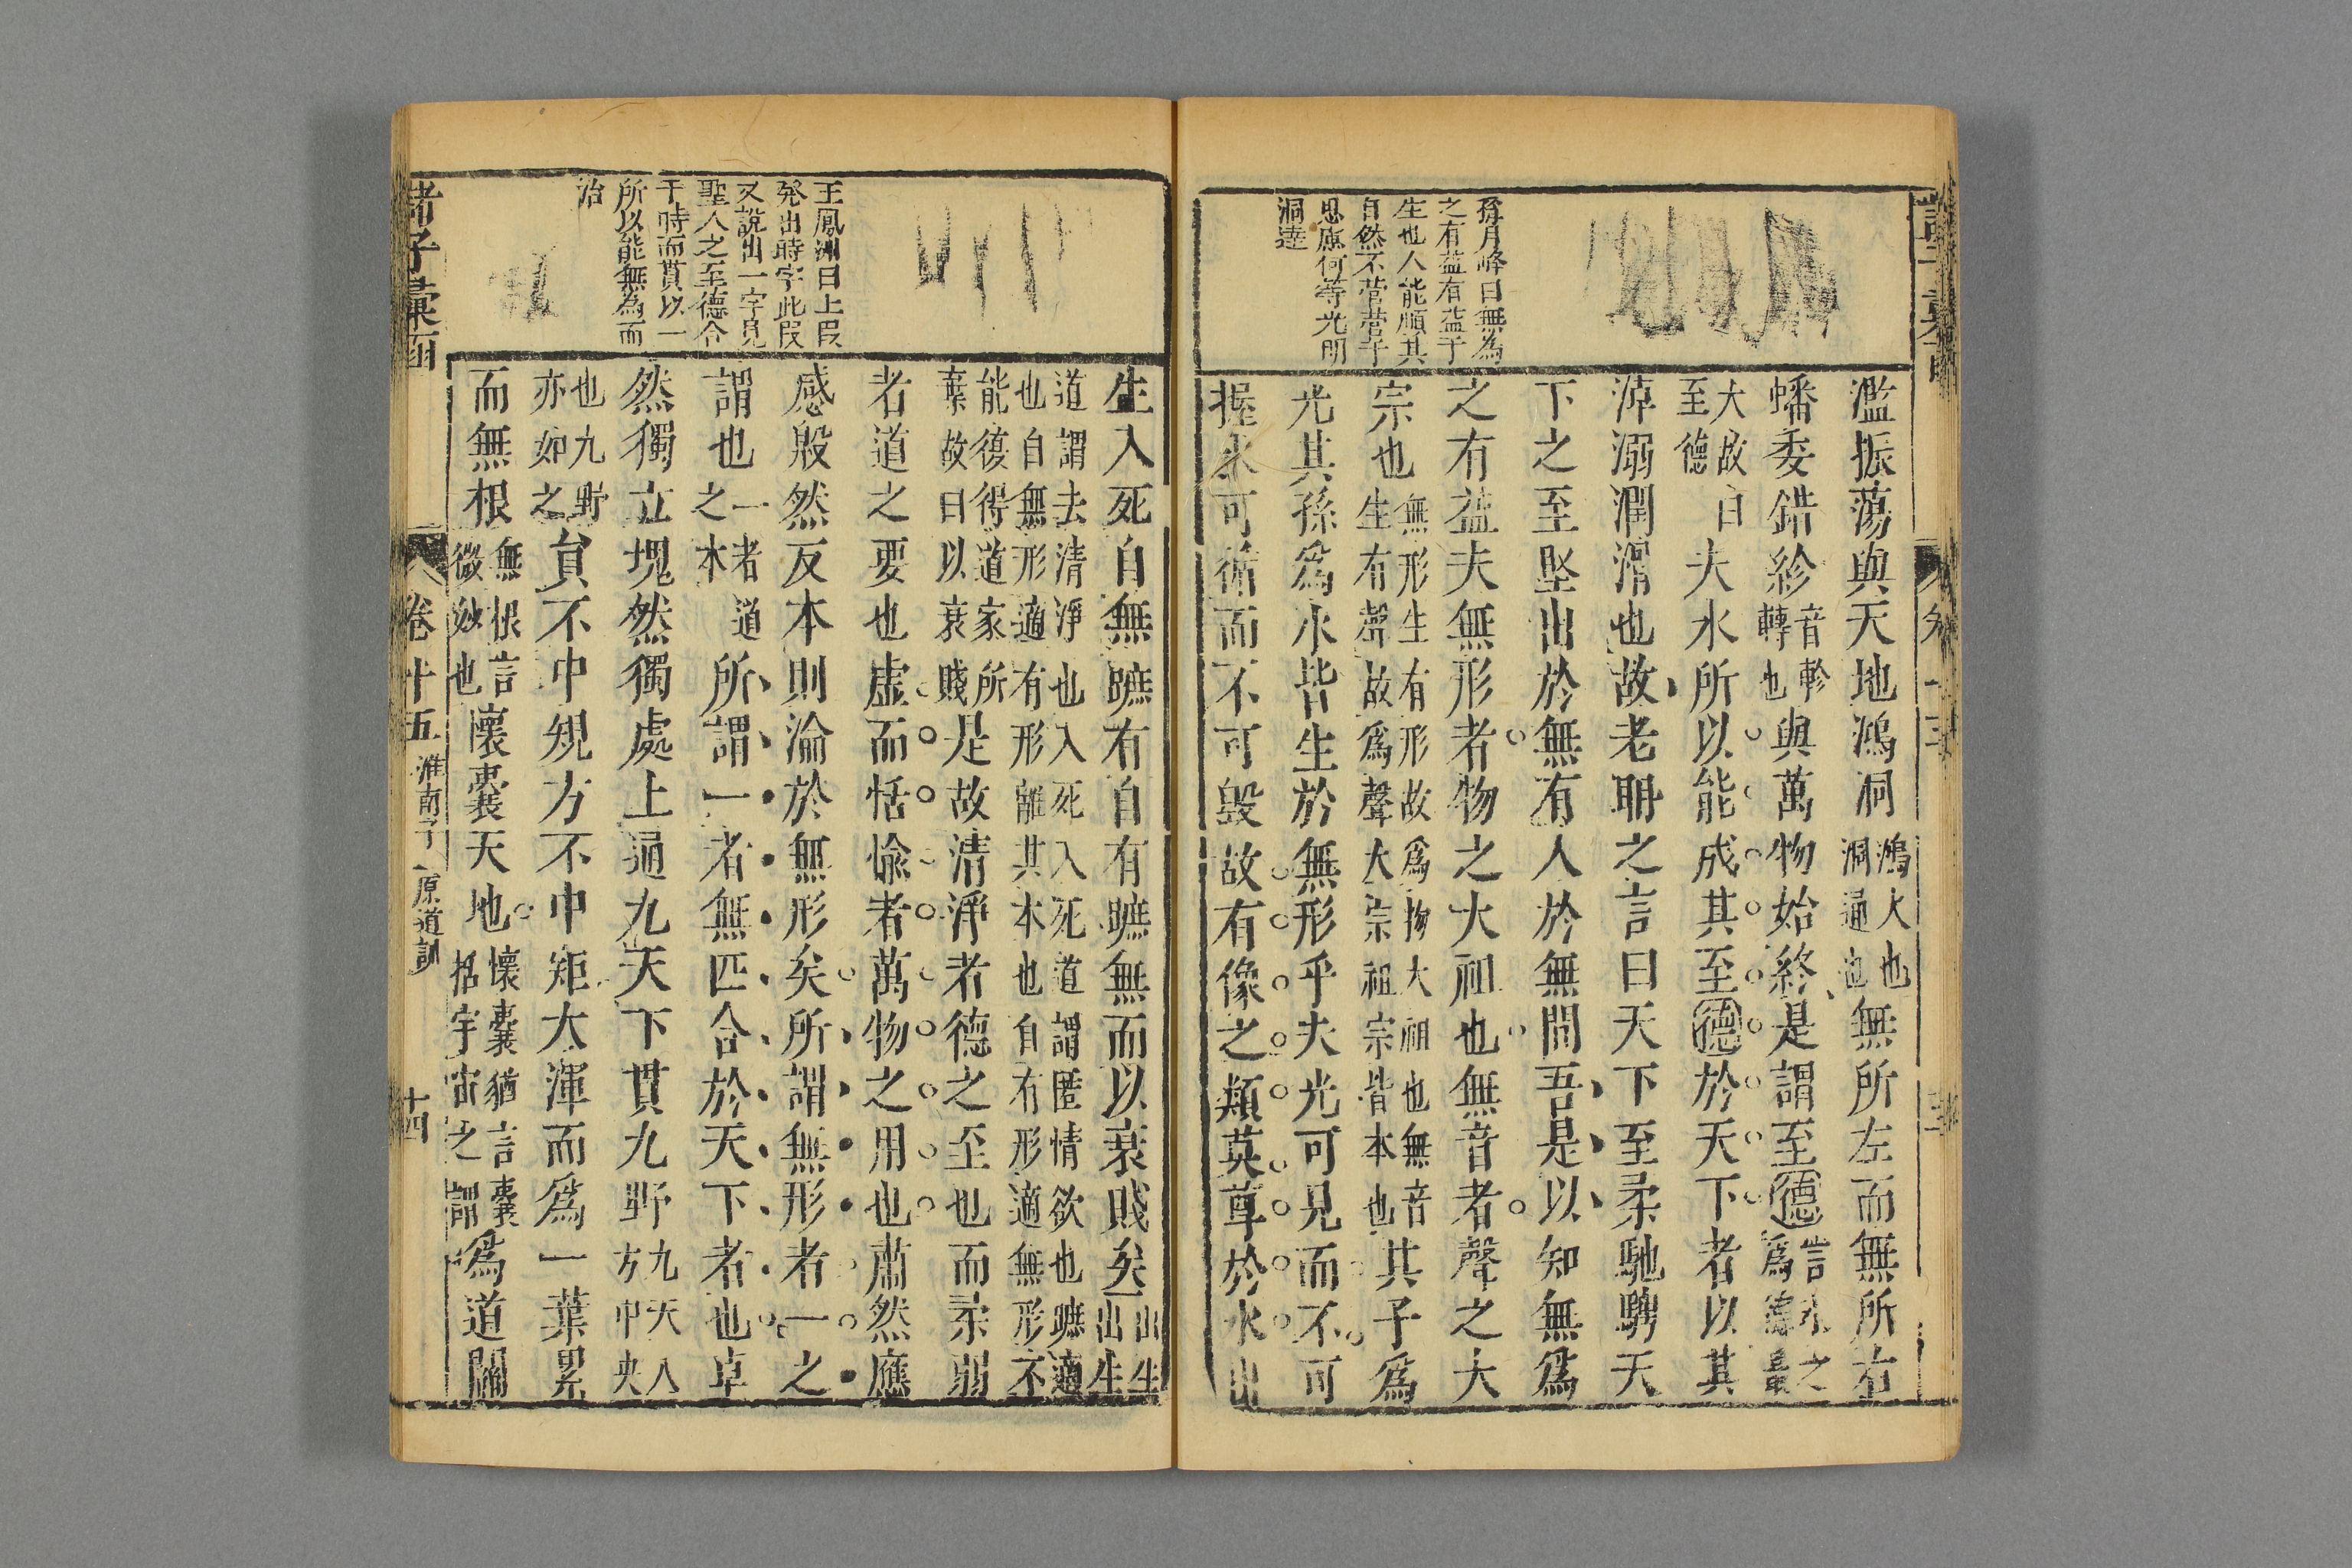 孫月峰曰無為
之有益有益于
生也人能順其
自然不營營于
思慮何等光明
洞達
濫振蕩與天地鴻洞鴻大也洞通也無所左而無所右
蟠委錯紾音軫轉也與萬物始終是謂至德言水之為德最
大故曰至德夫水所以能成其至德於天下者以其
淖溺潤滑也故老耼之言曰天下至柔馳騁天
下之至堅出於無有入於無間吾是以知無爲
之有益夫無形者物之大祖也無音者聲之大
宗也無形生有形故爲物大祖也無音生有聲故爲聲大宗祖宗皆本也其子爲
光其孫爲水皆生於無形乎夫光可見而不可
握水可循而不可毀故有像之類莫尊於水出
王鳳洲曰上叚
發出時字此叚
又說出一字見
聖人之至德合
于時而貫以一
所以能無為而
治
生入死自無蹠有自有蹠無而以衰賤矣出生出生
道謂去清淨也入死入死道謂匿情欲也蹠適也自無形適有形離其本也自有形適無形不
能復得道家所棄故曰以衰賤是故清淨者德之至也而柔弱
者道之要也虛而恬愉者萬物之用也肅然應
感殷然反本則淪於無形矣所謂無形者一之
謂也一者道之本所謂一者無匹合於天下者也卓
然獨立塊然獨處上通九天下貫九野九天八方中央
也九野亦如之貟不中規方不中矩大渾而爲一葉累
而無根無根言微妙也懷囊天地懷囊猶言囊括宇宙之謂爲道關
諸子彙函
卷十五 淮南子 原道訓
十四